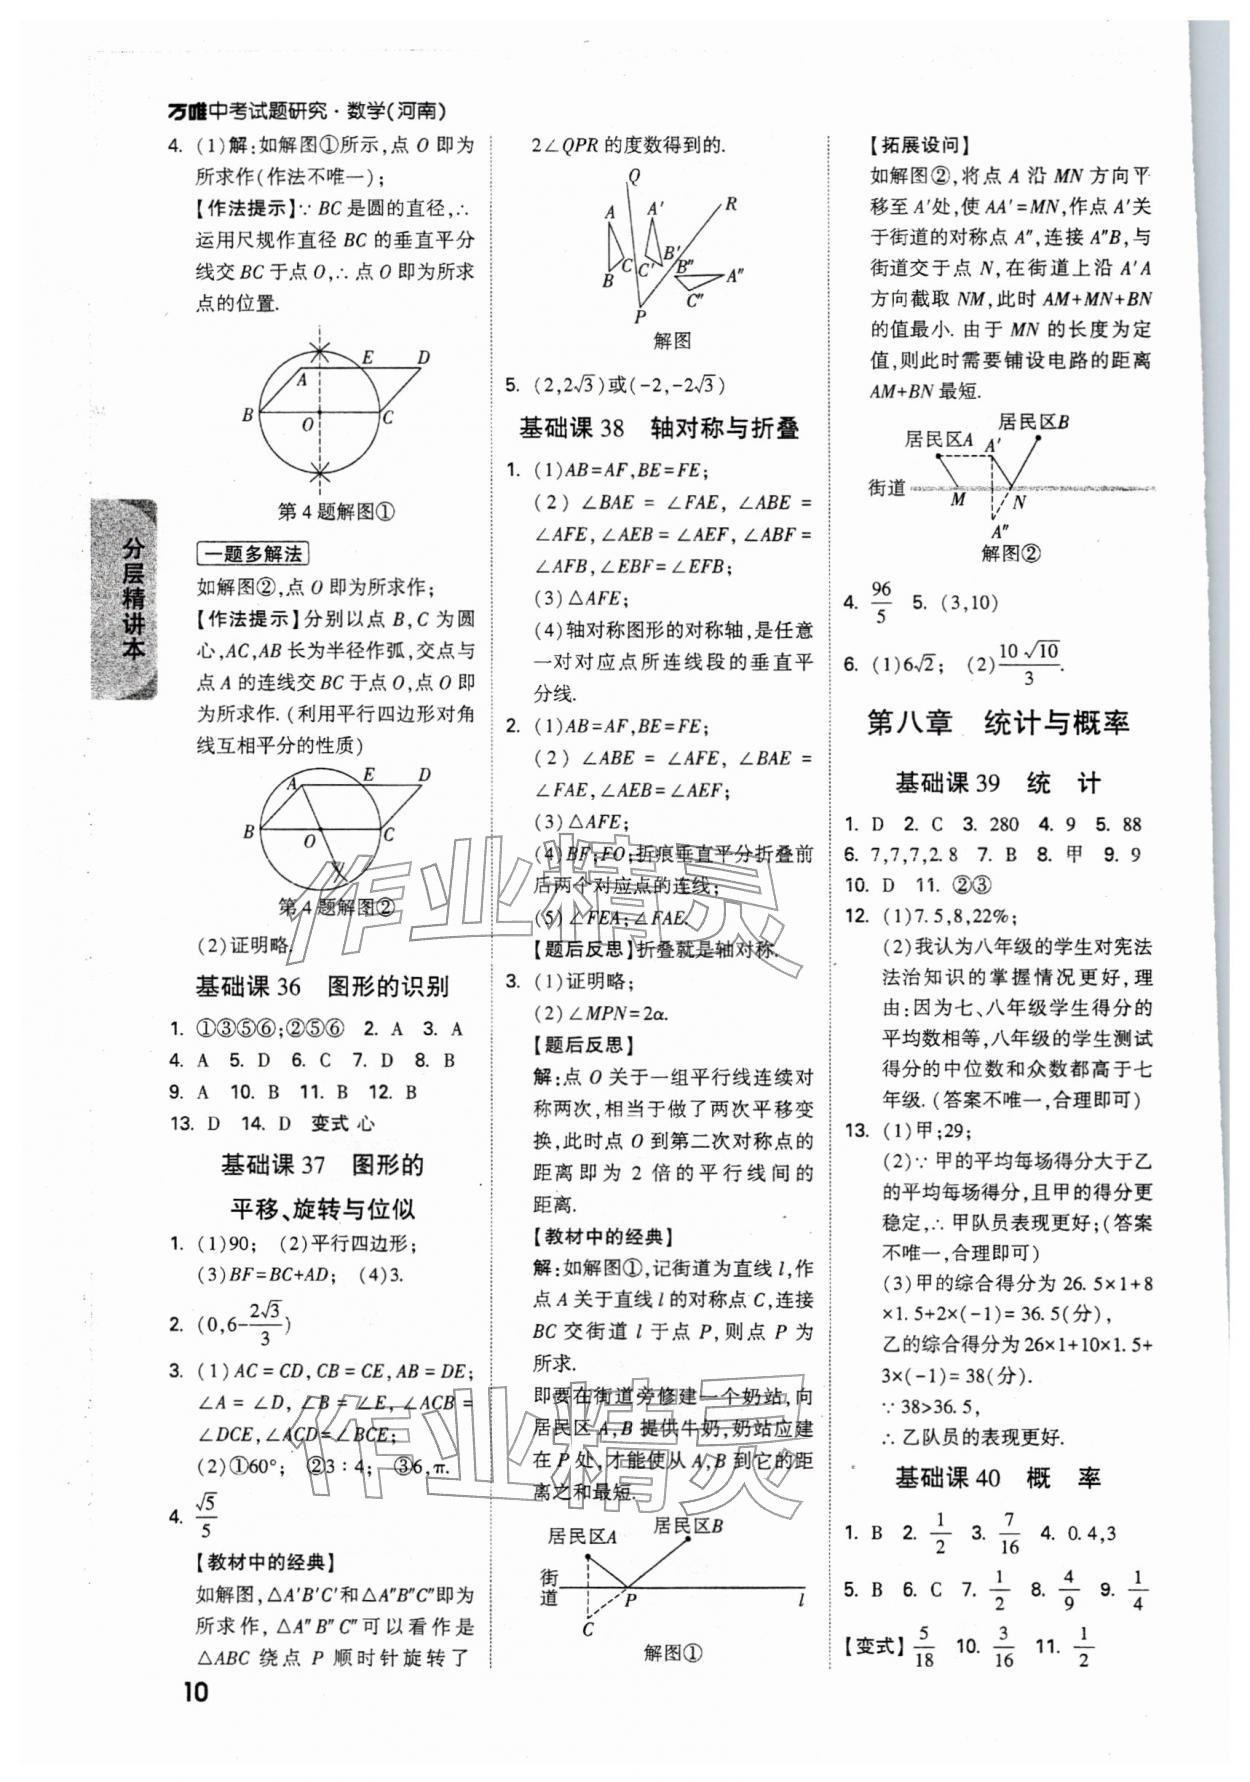 万唯中考试题研究·数学(河南)
4. (1)解:如解图①所示,点 O 即为
所求作(作法不唯一);
【作法提示】∵ BC 是圆的直径,∴
运用尺规作直径 BC 的垂直平分
线交 BC 于点 O,∴ 点 O 即为所求
点的位置.
A E D
B O C
第 4 题解图①
一题多解法
如解图②,点 O 即为所求作;
【作法提示】分别以点 B,C 为圆
心,AC,AB 长为半径作弧,交点与
点 A 的连线交 BC 于点 O,点 O 即
为所求作. (利用平行四边形对角
线互相平分的性质)
A E D
B O C
第 4 题解图②
(2)证明略.
基础课 36 图形的识别
1. ①③⑤⑥;②⑤⑥ 2. A 3. A
4. A 5. D 6. C 7. D 8. B
9. A 10. B 11. B 12. B
13. D 14. D 变式 心
基础课 37 图形的
平移、旋转与位似
1. (1)90; (2)平行四边形;
(3)BF=BC+AD; (4)3.
2. (0,6-2√3/3)
3. (1)AC=CD,CB=CE,AB=DE;
∠A=∠D,∠B=∠E,∠ACB=
∠DCE,∠ACD=∠BCE;
(2)①60°; ②3∶4; ③6,π.
4. √5/5
【教材中的经典】
如解图,△A′B′C′和△A″B″C″即为
所求作,△A″B″C″可以看作是
△ABC 绕点 P 顺时针旋转了
10
分层精讲本
2∠QPR 的度数得到的.
Q
A A′ R
B C C′ B′ B″ A″
C″
P
解图
5. (2,2√3)或(-2,-2√3)
基础课 38 轴对称与折叠
1. (1)AB=AF,BE=FE;
(2)∠BAE=∠FAE,∠ABE=
∠AFE,∠AEB=∠AEF,∠ABF=
∠AFB,∠EBF=∠EFB;
(3)△AFE;
(4)轴对称图形的对称轴,是任意
一对对应点所连线段的垂直平
分线.
2. (1)AB=AF,BE=FE;
(2)∠ABE=∠AFE,∠BAE=
∠FAE,∠AEB=∠AEF;
(3)△AFE;
(4)BF;FO;折痕垂直平分折叠前
后两个对应点的连线;
(5)∠FEA;∠FAE.
【题后反思】折叠就是轴对称.
3. (1)证明略;
(2)∠MPN=2α.
【题后反思】
解:点 O 关于一组平行线连续对
称两次,相当于做了两次平移变
换,此时点 O 到第二次对称点的
距离即为 2 倍的平行线间的
距离.
【教材中的经典】
解:如解图①,记街道为直线 l,作
点 A 关于直线 l 的对称点 C,连接
BC 交街道 l 于点 P,则点 P 为
所求.
即要在街道旁修建一个奶站,向
居民区 A,B 提供牛奶,奶站应建
在 P 处,才能使从 A,B 到它的距
离之和最短.
居民区A 居民区B
街道 P l
C
解图①
【拓展设问】
如解图②,将点 A 沿 MN 方向平
移至 A′处,使 AA′=MN,作点 A′关
于街道的对称点 A″,连接 A″B,与
街道交于点 N,在街道上沿 A′A
方向截取 NM,此时 AM+MN+BN
的值最小. 由于 MN 的长度为定
值,则此时需要铺设电路的距离
AM+BN 最短.
居民区A A′ 居民区B
街道 M N
A″
解图②
4. 96/5 5. (3,10)
6. (1)6√2; (2)10√10/3.
第八章 统计与概率
基础课 39 统 计
1. D 2. C 3. 280 4. 9 5. 88
6. 7,7,7,2.8 7. B 8. 甲 9. 9
10. D 11. ②③
12. (1)7.5,8,22%;
(2)我认为八年级的学生对宪法
法治知识的掌握情况更好,理
由:因为七、八年级学生得分的
平均数相等,八年级的学生测试
得分的中位数和众数都高于七
年级. (答案不唯一,合理即可)
13. (1)甲;29;
(2)∵ 甲的平均每场得分大于乙
的平均每场得分,且甲的得分更
稳定,∴ 甲队员表现更好;(答案
不唯一,合理即可)
(3)甲的综合得分为 26.5×1+8
×1.5+2×(-1)=36.5(分),
乙的综合得分为 26×1+10×1.5+
3×(-1)=38(分).
∵ 38>36.5,
∴ 乙队员的表现更好.
基础课 40 概 率
1. B 2. 1/2 3. 7/16 4. 0.4,3
5. B 6. C 7. 1/2 8. 4/9 9. 1/4
【变式】5/18 10. 3/16 11. 1/2
作业精灵
作业精灵